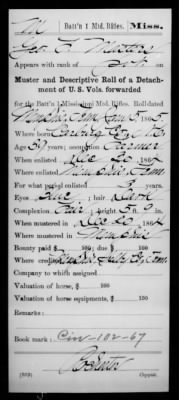 M Batt'n 1 Mtd. Rifles. Miss.
Geo. F.
Appears with rank of
Muster and Descriptive Roll of a Detachment of U. S. Vols. forwarded
for the Batt'n 1 Mississippi Mtd. Rifles. Roll dated
Memphis Tenn Jan 5, 1865.
Where born
Age 39 years; occupation Farmer
When enlisted Dec 20, 1864
Where enlisted Memphis, Tenn
For what period enlisted 3 years.
Eyes ; hair Dark
Complexion Fair; height 5 ft. 9 in.
When mustered in Dec 20, 1864
Where mustered in Memphis
Bounty paid $ 100; due $ 100
Where credited Shelby Co, Tenn
Company to which assigned
Valuation of horse, $ 100
Valuation of horse equipments, $ 100
Remarks:
Book mark: Civ-102-67
(339) Copyist.